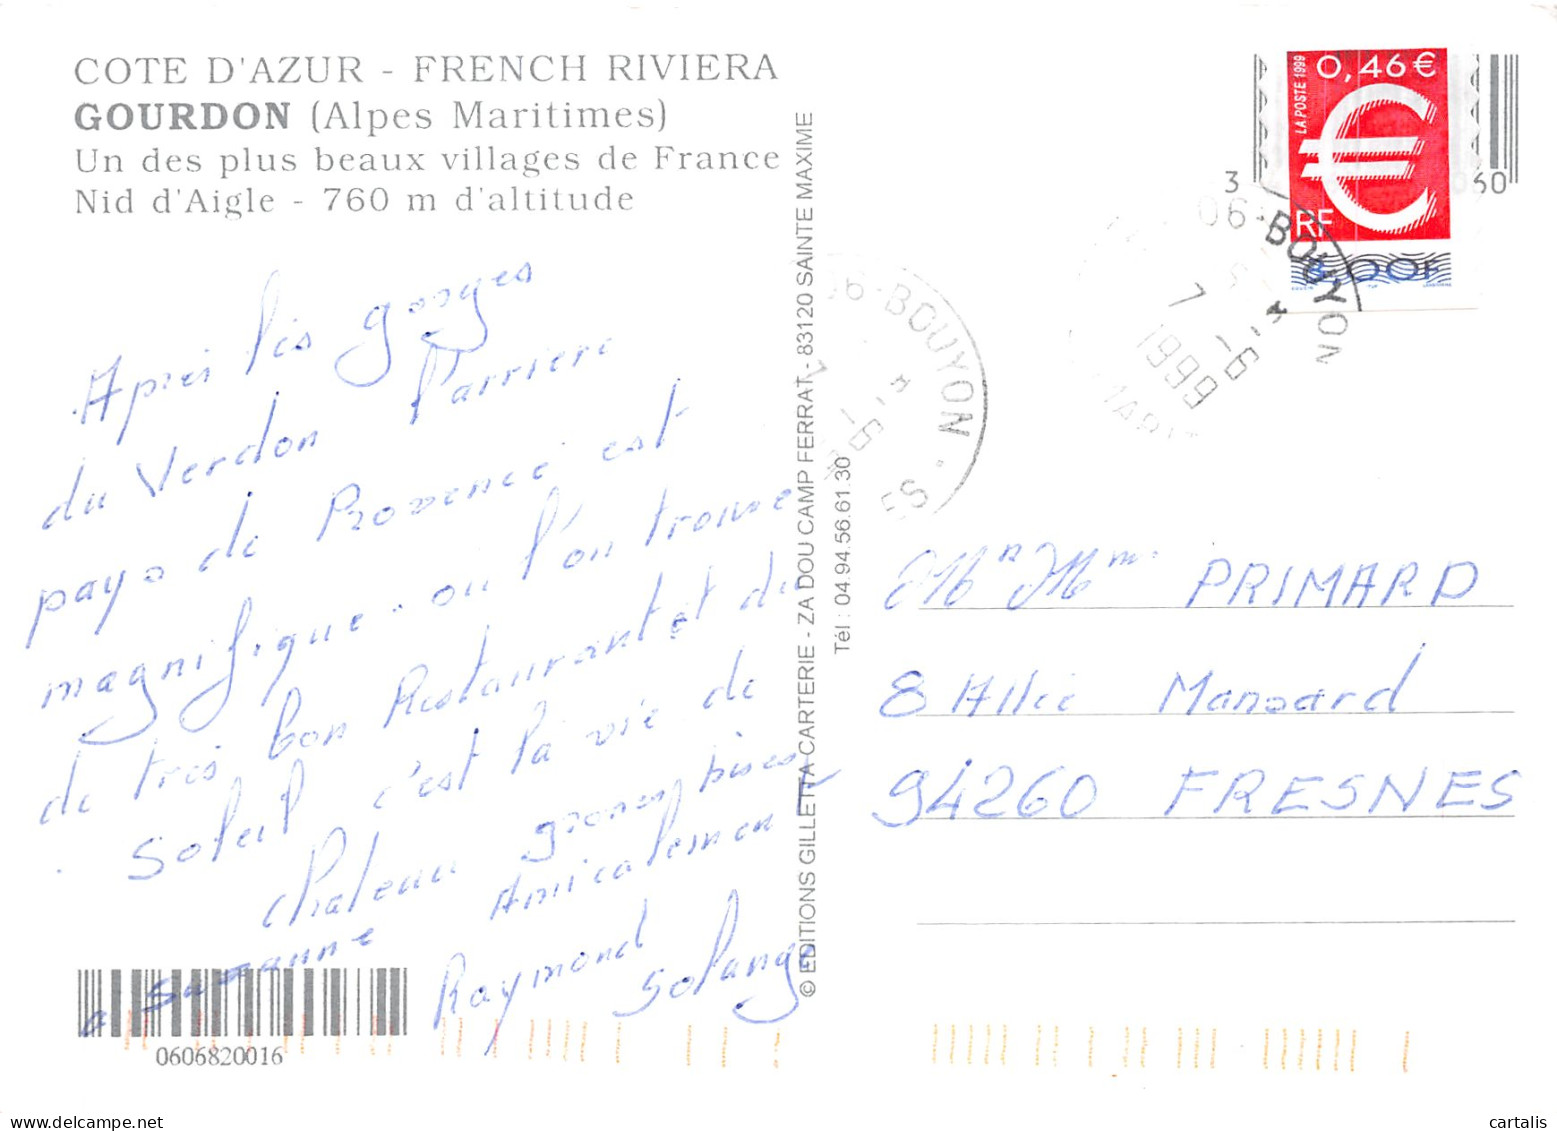 COTE D'AZUR - FRENCH RIVIERA
GOURDON (Alpes Maritimes)
Un des plus beaux villages de France
Nid d'Aigle - 760 m d'altitude
Après les gorges
du Verdon l'arrière
pays de Provence est
magnifique. ou l'on trouve
de très bon Restaurant et du
Soleil c'est la vie de
Chateau grosses bises
a Suzanne Amicalement
Raymond Solange
0606820016
© EDITIONS GILLETTA CARTERIE - ZA DOU CAMP FERRAT - 83120 SAINTE MAXIME
Tél : 04.94.56.61.30
06-BOUYON
7 -6-
LA POSTE 1999
0,46 €
RF
3,00F
3
060
06-BOUYON
7 -6-
1999
PRIMARD
8 Allée Mansard
94260 FRESNES
cartalis
www.delcampe.net